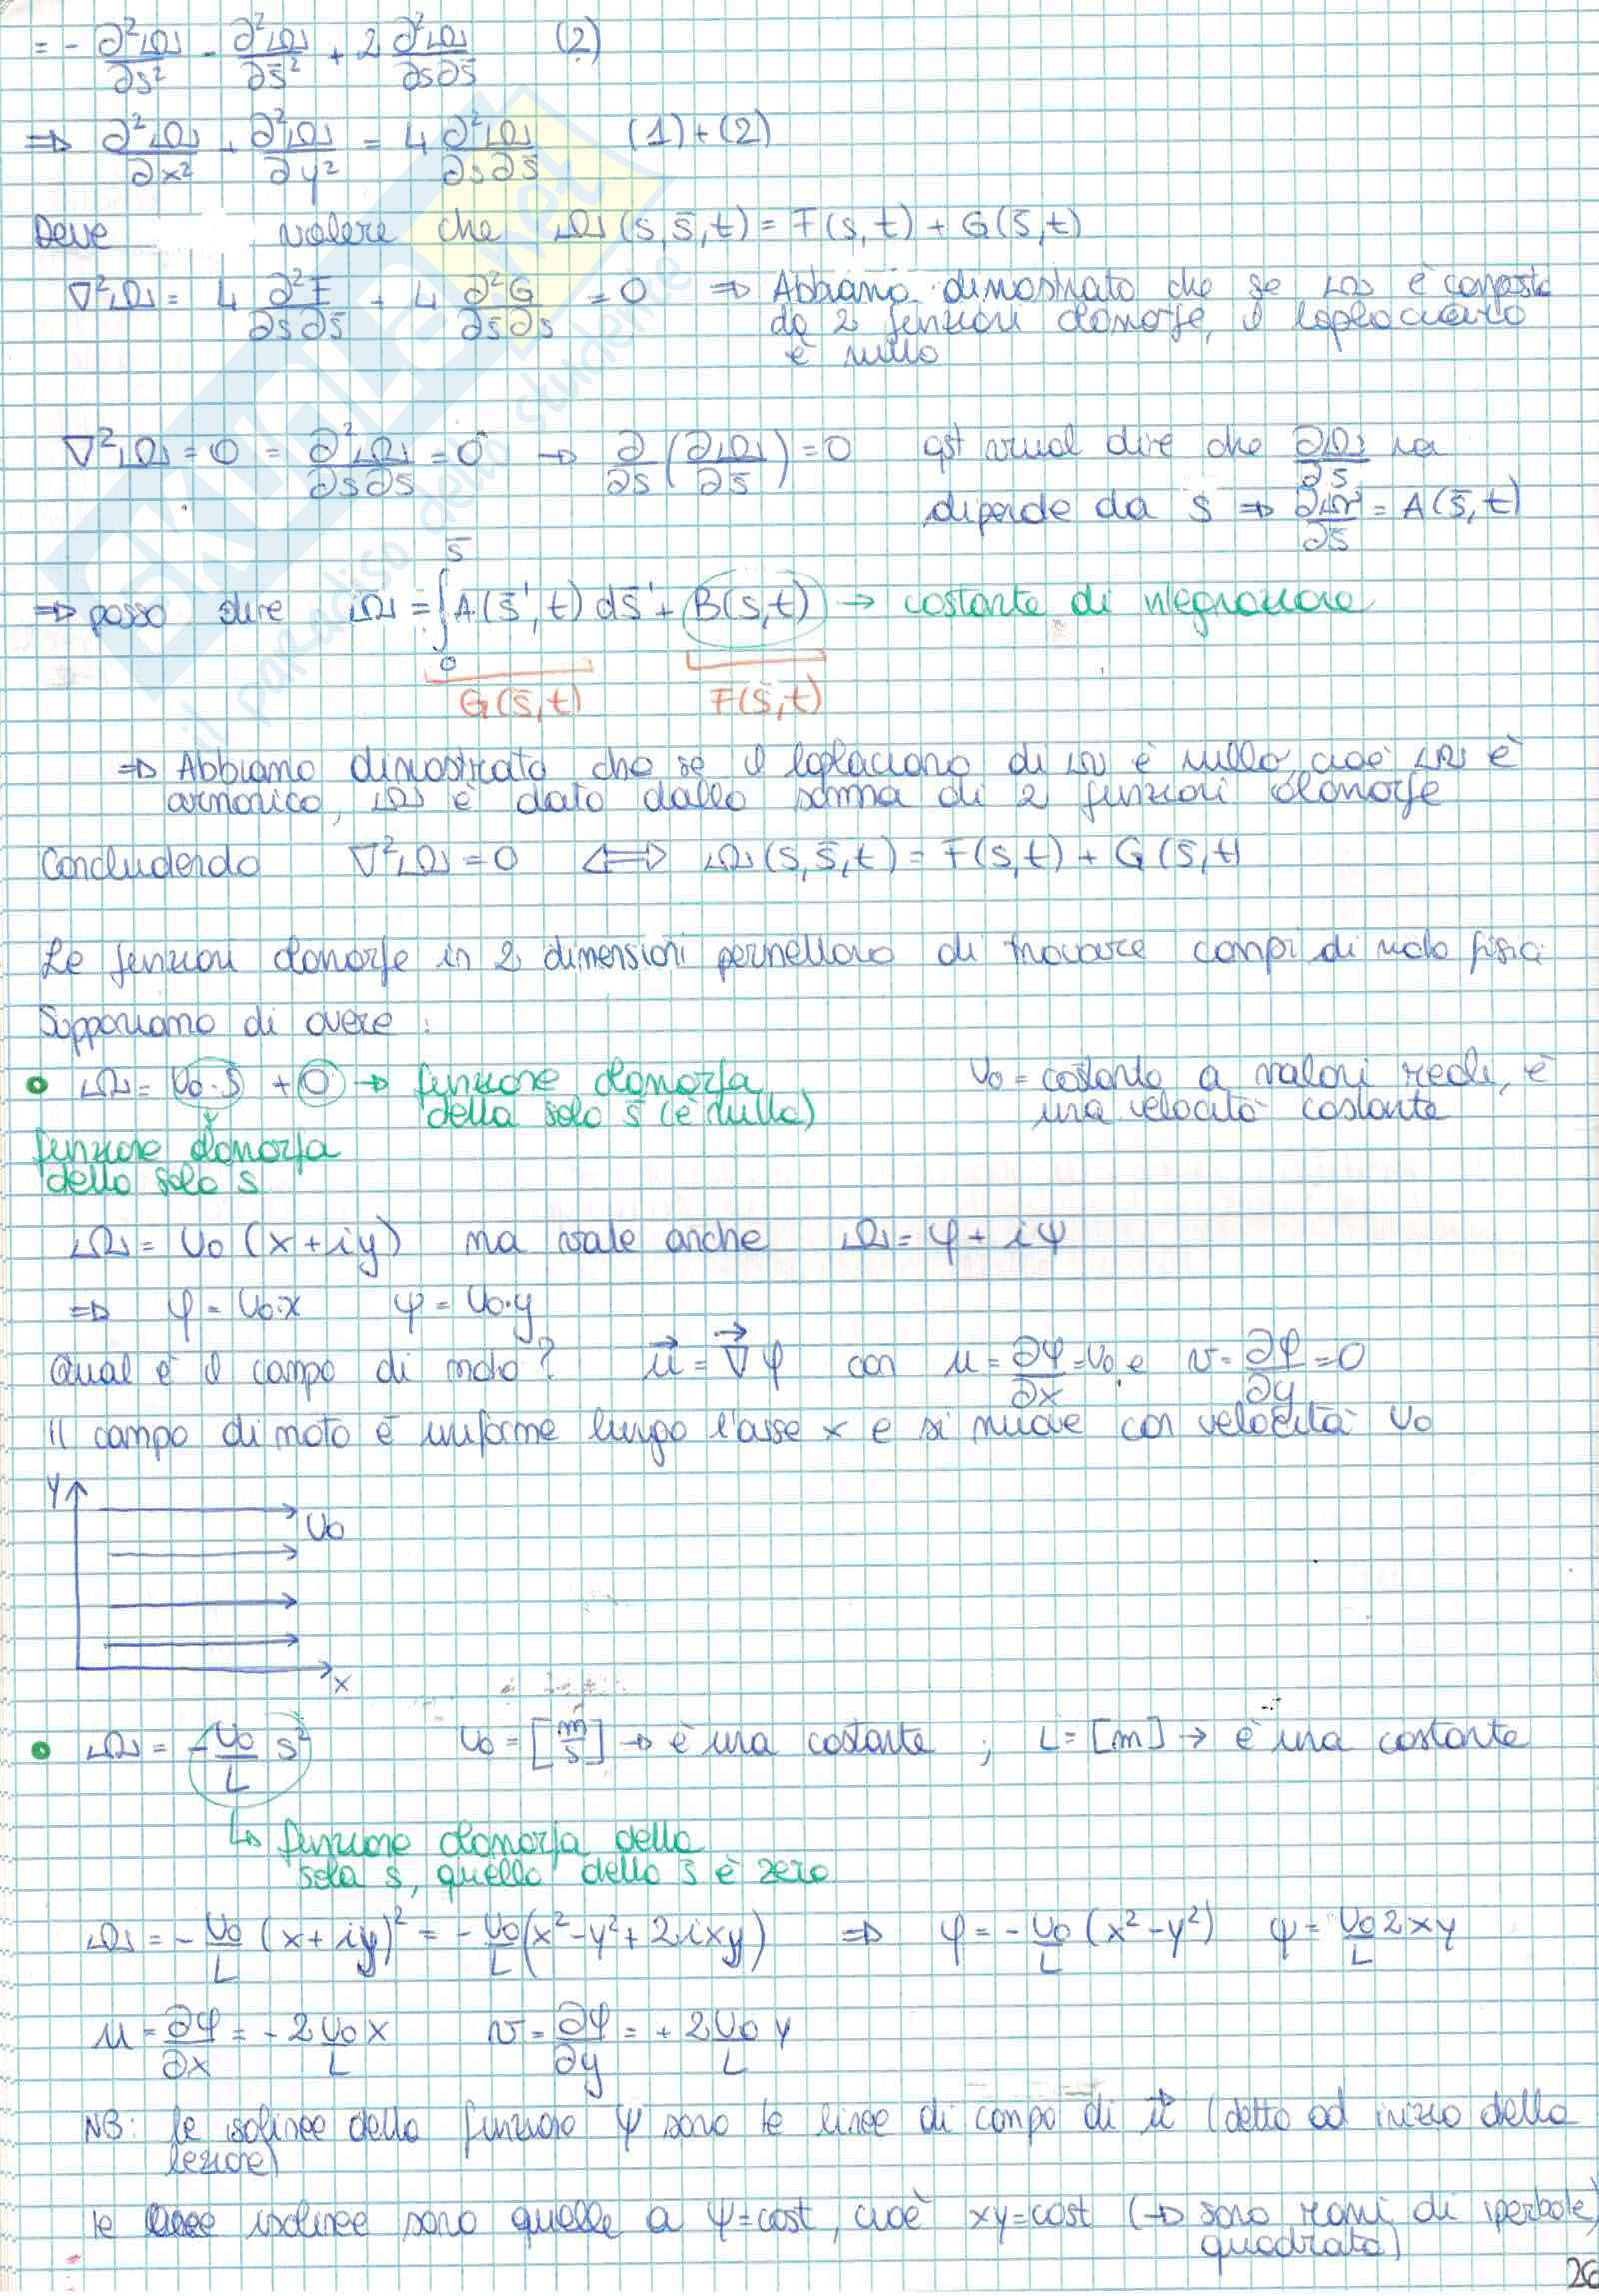 = - ∂²Ω/∂s² - ∂²Ω/∂s̄² + 2 ∂²Ω/∂s∂s̄ (2)
⇒ ∂²Ω/∂x² + ∂²Ω/∂y² = 4 ∂²Ω/∂s∂s̄ (1)+(2)
Deve valere che Ω(s,s̄,t) = F(s,t) + G(s̄,t)
∇²Ω = 4 ∂²F/∂s∂s̄ + 4 ∂²G/∂s̄∂s = 0 ⇒ Abbiamo dimostrato che se Ω è composta
da 2 funzioni olomorfe, il laplaciano
è nullo
∇²Ω = 0 = ∂²Ω/∂s∂s̄ = 0 → ∂/∂s (∂Ω/∂s̄) = 0 qst vuol dire che ∂Ω/∂s̄ non
dipende da s ⇒ ∂Ω/∂s̄ = A(s̄,t)
⇒ posso dire Ω = ∫₀^s̄ A(s̄',t) ds̄' + B(s,t) → costante di integrazione
G(s̄,t) F(s,t)
⇒ Abbiamo dimostrato che se il laplaciano di Ω è nullo, cioè Ω è
armonico, Ω è dato dalla somma di 2 funzioni olomorfe
Concludendo ∇²Ω = 0 ⇔ Ω(s,s̄,t) = F(s,t) + G(s̄,t)
Le funzioni olomorfe in 2 dimensioni permettono di trovare campi di moto fisici
Supponiamo di avere:
• Ω = U₀·s + 0 → funzione olomorfa U₀ = costante a valori reali, è
della sola s̄ (è nulla) una velocità costante
funzione olomorfa
della sola s
Ω = U₀ (x+iy) ma vale anche Ω = φ + iψ
⇒ φ = U₀·x ψ = U₀·y
Qual è il campo di moto? u⃗ = ∇⃗φ con u = ∂φ/∂x = U₀ e v = ∂φ/∂y = 0
Il campo di moto è uniforme lungo l'asse x e si muove con velocità U₀
y
U₀
x
• Ω = -U₀/L s² U₀ = [m/s] → è una costante ; L = [m] → è una costante
↳ funzione olomorfa della
sola s, quella della s̄ è zero
Ω = -U₀/L (x+iy)² = -U₀/L (x²-y²+2ixy) ⇒ φ = -U₀/L (x²-y²) ψ = U₀/L 2xy
u = ∂φ/∂x = -2U₀/L x v = ∂φ/∂y = +2U₀/L y
NB: le isolinee della funzione ψ sono le linee di campo di u⃗ (detto ad inizio della
lezione)
le isolinee sono quelle a ψ=cost, cioè xy=cost (→ sono rami di iperbole
quadrata)
26
il paradiso dello studente